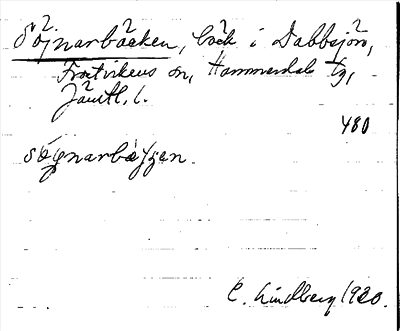 Söjnarbäcken, bäck i Dabbsjön,
Fratvikens sn, Hammerdals tg,
Jämtl. l.
480
söynarbäkken.
C. Lindberg 1920.